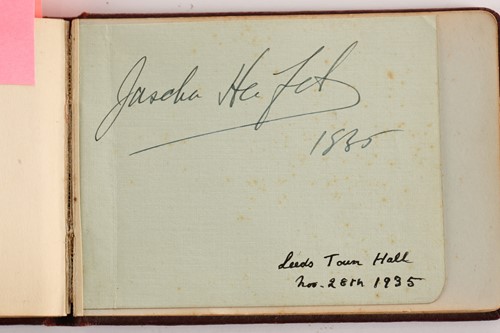 Jascha Heifetz
1935
Leeds Town Hall
Nov. 28th 1935